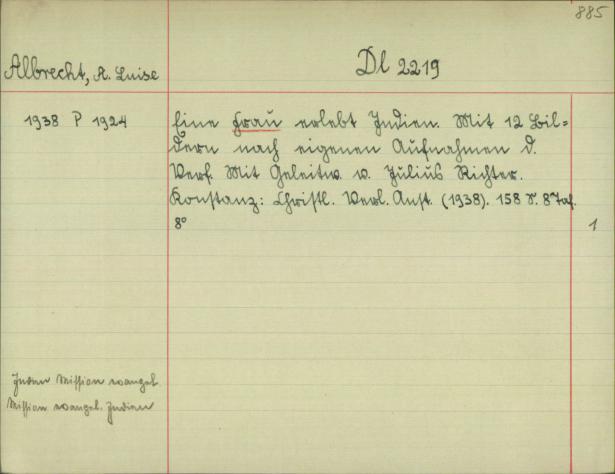 885
Albrecht, A. Luise
Dl 2219
1938 P 1924
Eine Frau erlebt Indien. Mit 12 Bil=
dern nach eigenen Aufnahmen d.
Verf. Mit Geleitw. v. Julius Richter.
Konstanz: Christl. Verl. Anst. (1938). 158 S. 8 Taf.
8°
1
Indien Mission evangel.
Mission evangel. Indien